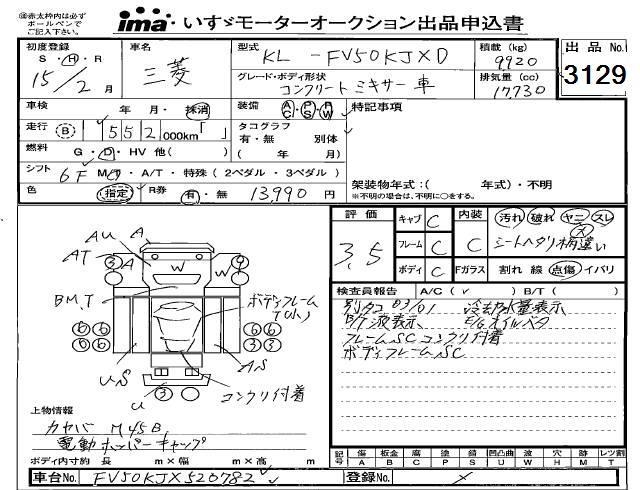 ㊟赤太枠内は必ず
ボールペンで
ご記入下さい。
ima いすゞモーターオークション出品申込書
初度登録
S・H・R
15/2月
車名
三菱
型式
KL-FV50KJXD
グレード・ボディ形状
コンクリートミキサー車
積載(kg)
9920
排気量(cc)
17,730
出品No.
3129
車検
年 月・抹消
装備
AC・PS・PW
特記事項
走行
B 552,000km「 」
タコグラフ
有・無 別体
( 年 月)
燃料
G・D・HV 他( )
シフト
6F M/T・A/T・特殊(2ペダル・3ペダル)
色
指定
R券
有・無 13,990円
架装物年式:( 年式)・不明
※不明の場合は、不明に○をする。
評価
3.5
キャブ C
フレーム C
ボディ C
内装
C
Fガラス
汚れ 破れ ヤニ スレ
シートヘタリ柄違い
割れ 線 点傷 イバリ
検査員報告 A/C( ✓ ) B/T( )
別タコ 03/01 冷却水量表示、
B/T液表示、 E/Gオイルベタ
フレームSCコンクリ付着
ボディフレームSC
AU
A
AT
③
A
W
W
B.M.T
ボディフレーム
T(小)
⑥⑥
⑥⑥
⑥⑥
③③
US
AS
U
③
コンクリ付着
上物情報
カヤバ M45B
電動ホッパーキャップ
ボディ内寸約 長 m×幅 m×高 m
記号
傷 A
板金 B
腐 C
塗 P
錆 S
凹凸曲 U
波 W
穴 H
欠 M
レツ割 T
車台No.
FV50KJX520782
登録No.